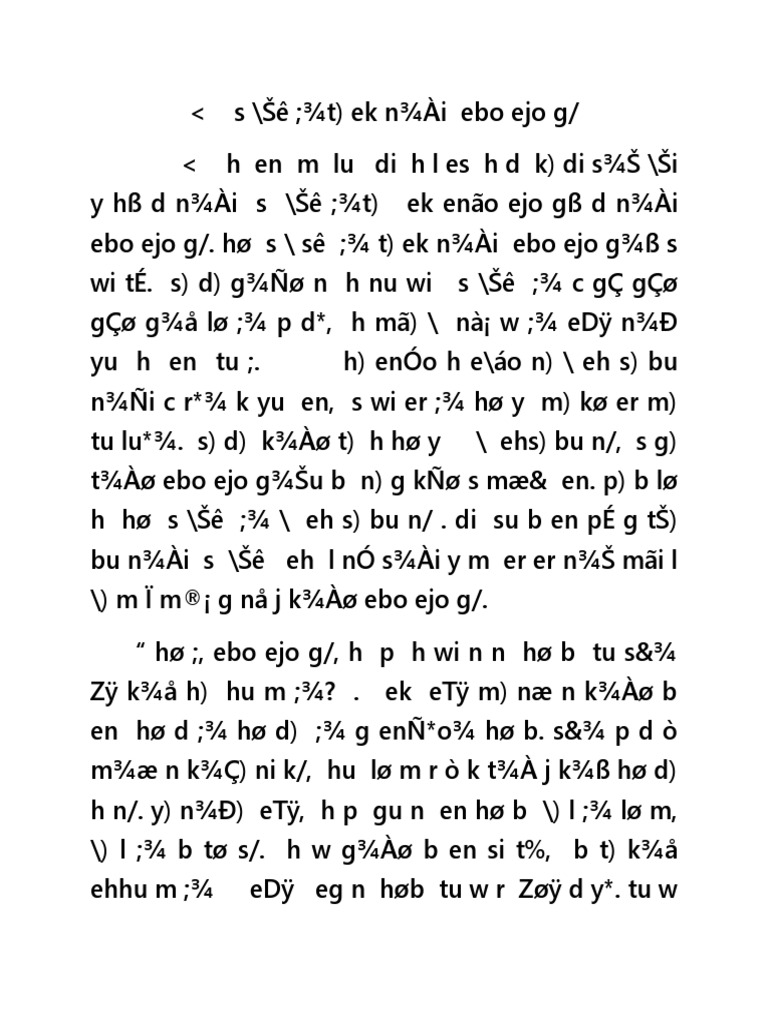 < s \Šê ;¾t) ek n¾Ài ebo ejo g/
< h en m lu di h l es h d k) di s¾Š \Ši
y hß d n¾Ài s \Šê ;¾t) ek enão ejo gß d n¾Ài
ebo ejo g/. hø s \ sê ;¾ t) ek n¾Ài ebo ejo g¾ß s
wi tÉ. s) d) g¾Ñø n h nu wi s \Šê ;¾ c gÇ gÇø
gÇø g¾å lø ;¾ p d*, h mã) \ nà¡ w ;¾ eDÿ n¾Ð
yu h en tu ;. h) enÓo h e\áo n) \ eh s) bu
n¾Ñi c r*¾ k yu en, s wi er ;¾ hø y m) kø er m)
tu lu*¾. s) d) k¾Àø t) h hø y \ ehs) bu n/, s g)
t¾Àø ebo ejo g¾Šu b n) g kÑø s mæ& en. p) b lø
h hø s \Šê ;¾ \ eh s) bu n/ . di su b en pÉ g tŠ)
bu n¾Ài s \Šê eh l nÓ s¾Ài y m er er n¾Š mãi l
\) m Ï m®¡ g nå j k¾Àø ebo ejo g/.
“ hø ;, ebo ejo g/, h p h wi n n hø b tu s&¾
Zÿ k¾å h) hu m ;¾? . ek eTÿ m) næ n k¾Àø b
en hø d ;¾ hø d) ;¾ g enÑ*o¾ hø b. s&¾ p d ò
m¾æ n k¾Ç) ni k/, hu lø m r ò k t¾À j k¾ß hø d)
h n/. y) n¾Ð) eTÿ, h p gu n en hø b \) l ;¾ lø m,
\) l ;¾ b tø s/. h w g¾Àø b en si t%, b t) k¾å
ehhu m ;¾ eDÿ eg n høb tu w r Zøÿ d y*. tu w